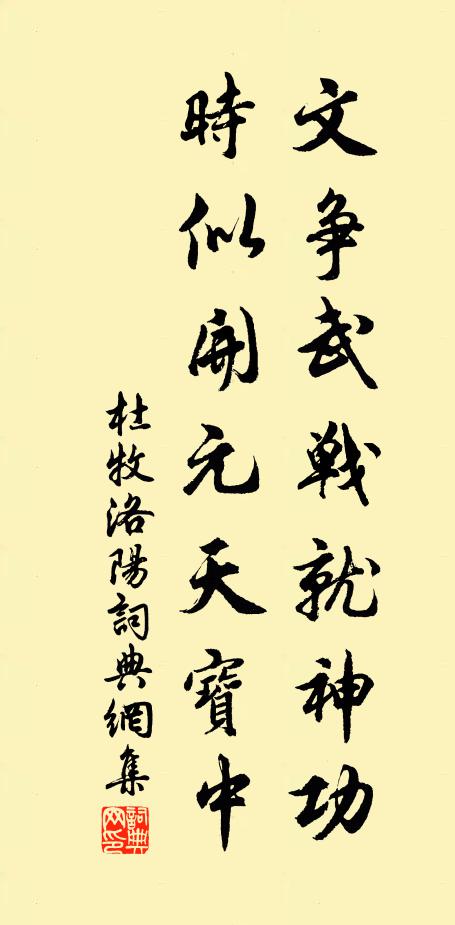 文争武戰就神功
時似開元天寶中
杜牧洛陽詞典網集
詞典網印